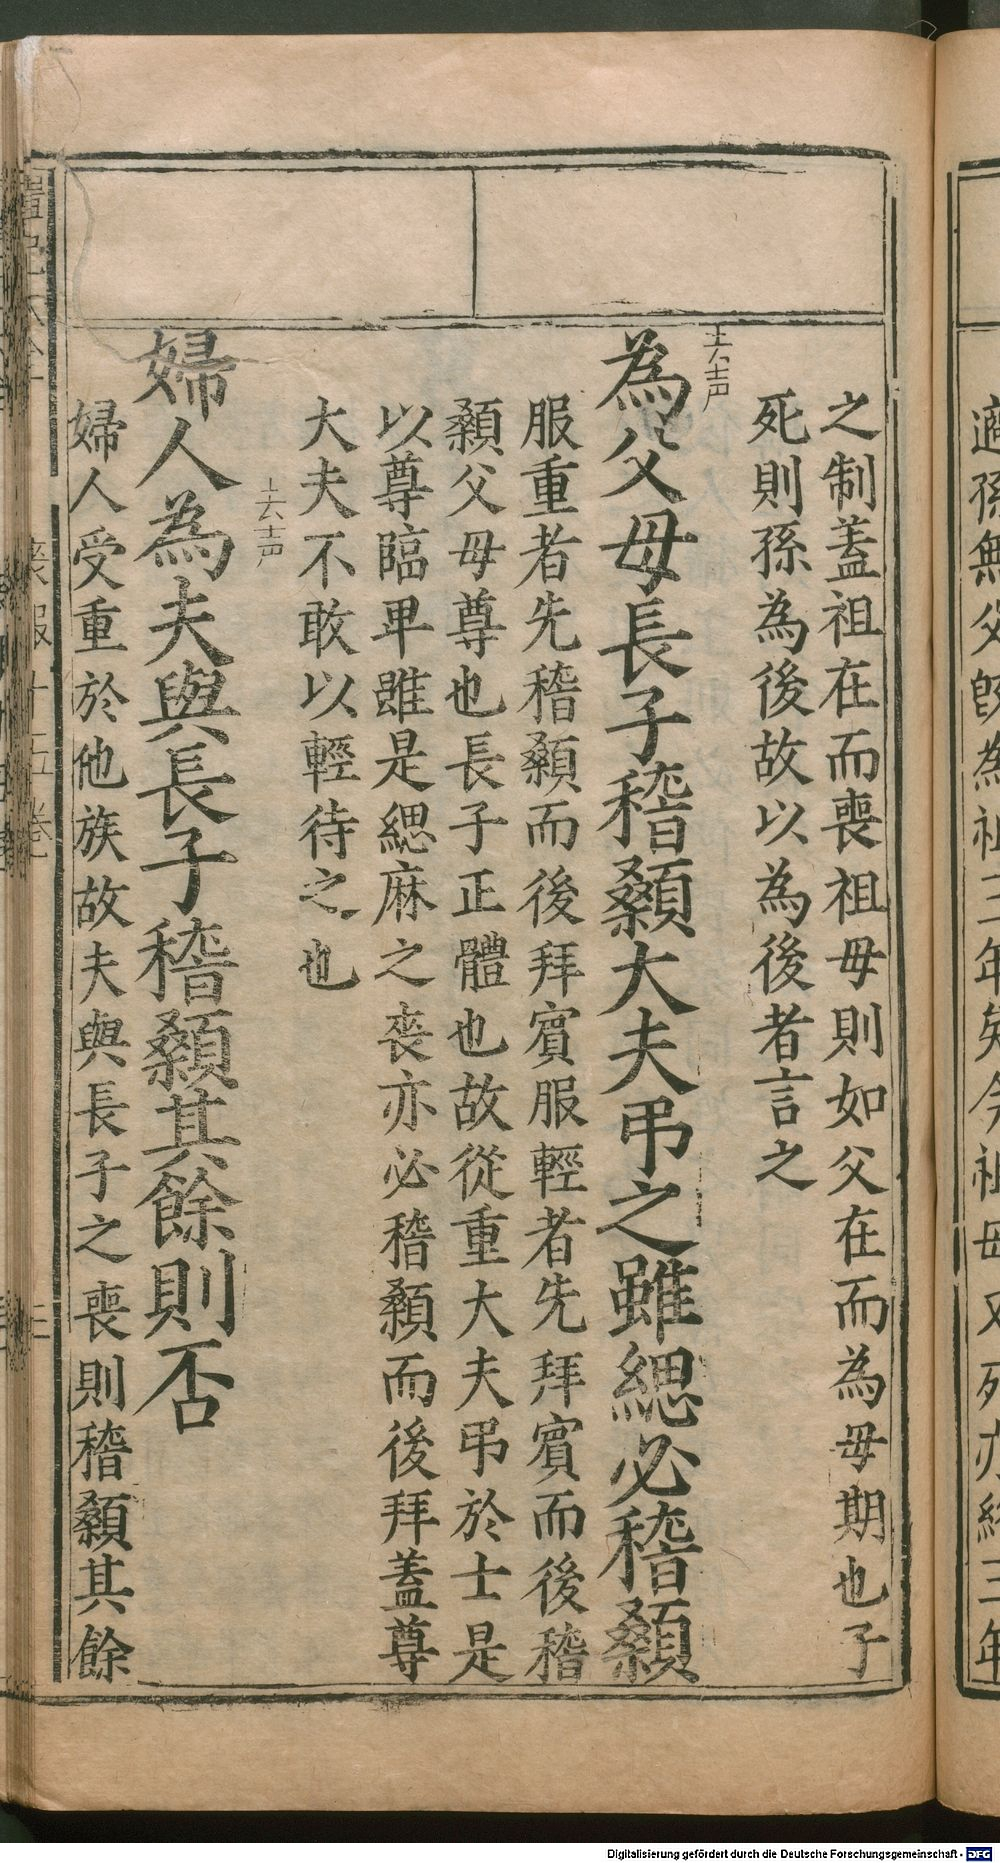 適孫無父既為祖三年矣今祖母又死亦終三年
之制蓋祖在而喪祖母則如父在而為母期也子
死則孫為後故以為後者言之
去声
為父母長子稽顙大夫弔之雖緦必稽顙
服重者先稽顙而後拜賓服輕者先拜賓而後稽
顙父母尊也長子正體也故從重大夫弔於士是
以尊臨卑雖是緦麻之喪亦必稽顙而後拜蓋尊
大夫不敢以輕待之也
去声
婦人為夫與長子稽顙其餘則否
婦人受重於他族故夫與長子之喪則稽顙其餘
喪服十五卷
Digitalisierung gefördert durch die Deutsche Forschungsgemeinschaft - DFG